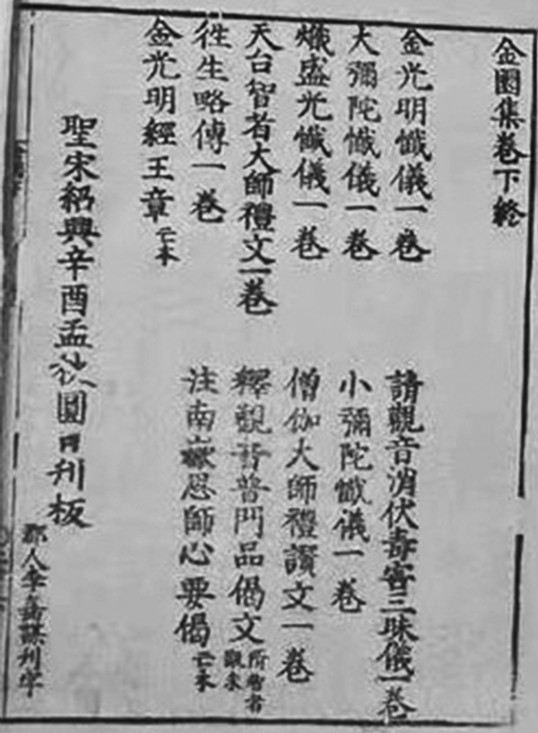 金園集卷下終
金光明懺儀一卷
請觀音消伏毒害三昧儀一卷
大彌陀懺儀一卷
小彌陀懺儀一卷
熾盛光懺儀一卷
僧伽大師禮讚文一卷
天台智者大師禮文一卷
釋觀音普門品偈文
往生略傳一卷
注南嶽思師心要偈亡本
金光明經王章亡本
聖宋紹興辛酉孟秋圓日刊板
郡人李 謀刊字